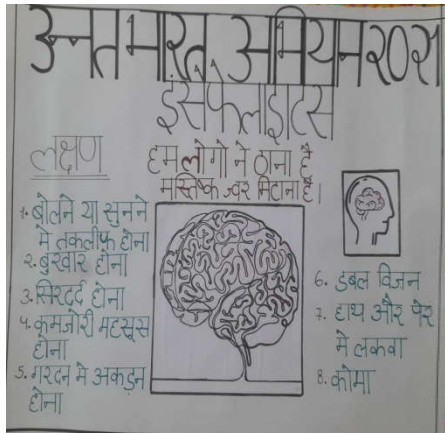 उन्नत भारत अभियान २०२१
इंसेफेलाइटिस
लक्षण
हम लोगो ने ठाना है
मस्तिष्क ज्वर मिटाना है।
1. बोलने या सुनने
मे तकलीफ होना
२. बुखार होना
3. सिरदर्द होना
४. कमजोरी महसूस
होना
5. गरदन मे अकड़न
होना
6. डबल विजन
7. हाथ और पैर
मे लकवा
8. कोमा